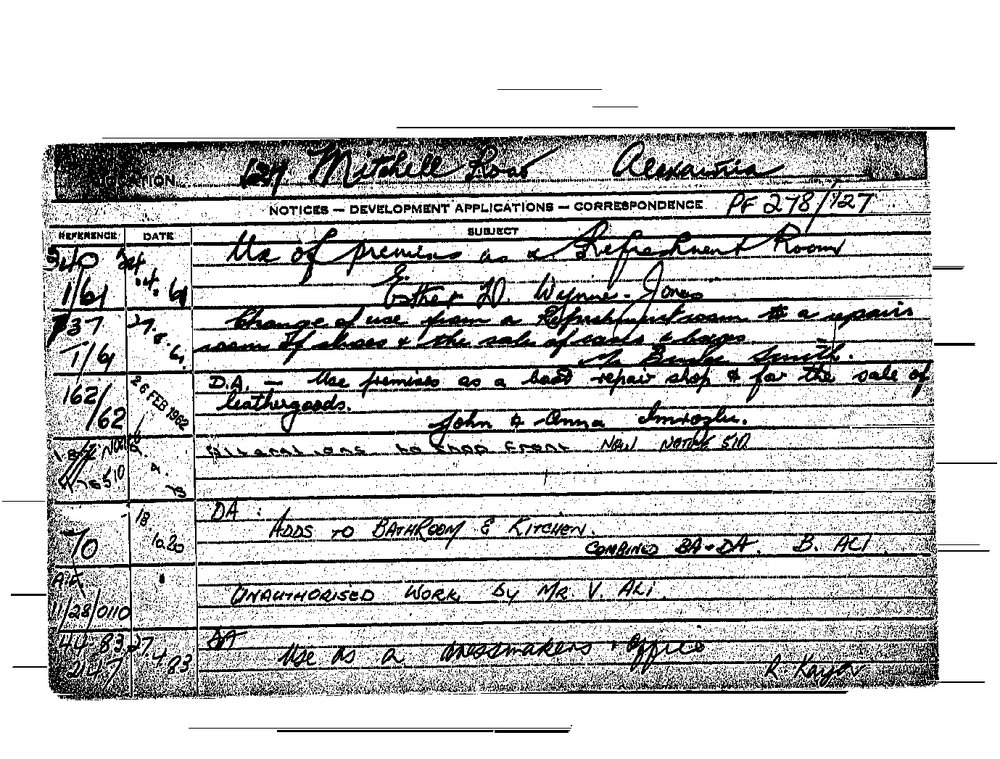 127 Mitchell Road Alexandria
NOTICES — DEVELOPMENT APPLICATIONS — CORRESPONDENCE PF 278/127
REFERENCE DATE SUBJECT
340 Use of premises as a Refreshment Room
1/61 61 Esther D. Wynne-Jones
737 Change of use from a Refreshment room to a repairs
1/61 room of shoes & the sale of & bags
Smith.
162/62 26 FEB 1962 D.A. — Use premises as a boot repair shop & for the sale of
leathergoods.
John & Anna
to shop front NEW NOTICE 510
510
DA.
70 ADDS TO BATHROOM & KITCHEN.
COMBINED BA + DA. B. ALI
11/28/0110 UNAUTHORISED WORK BY MR V. ALI.
44.83 27.4 DA
247 83 Use as a dressmakers + office
R. Kaya